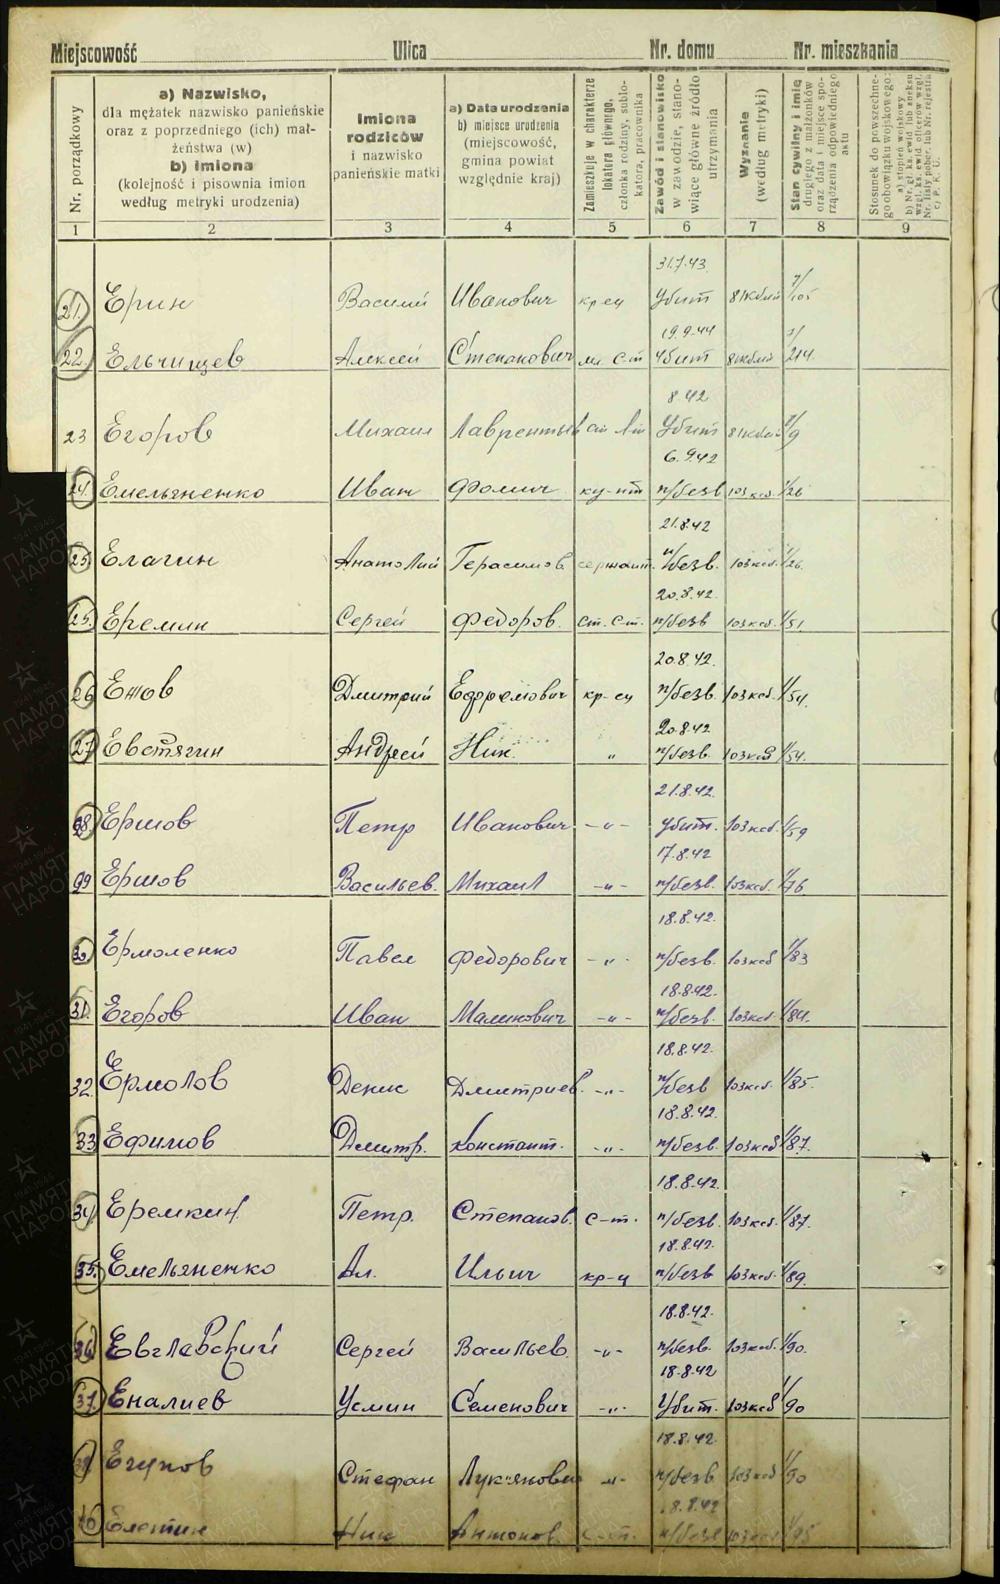 Miejscowość Ulica Nr. domu Nr. mieszkania
Nr. porządkowy
a) Nazwisko,
dla mężatek nazwisko panieńskie
oraz z poprzedniego (ich) mał-
żeństwa (w)
b) Imiona
(kolejność i pisownia imion
według metryki urodzenia)
Imiona
rodziców
i nazwisko
panieńskie matki
a) Data urodzenia
b) miejsce urodzenia
(miejscowość,
gmina powiat
względnie kraj)
Zamieszkuje w charakterze
lokatora głównego,
członka rodziny, sublo-
katora, pracownika
Zawód i stanowisko
w zawodzie, stano-
wiące główne źródło
utrzymania
Wyznanie
(według metryki)
Stan cywilny i imię
drugiego z małżonków
oraz data i miejsce spo-
rządzenia odpowiedniego
aktu
Stosunek do powszechne-
go obowiązku wojskowego:
a) stopień wojskowy
1 2 3 4 5 6 7 8 9
31.7.43.
21. Ерин Василий Иванович кр-ец Убит 81кбмб 1/105
19.9.44
22. Ельчищев Алексей Степанович мл. с-т Убит 1/214.
8.42
23 Егоров Михаил Лаврентьев Убит 1/9
6.9.42
24. Емельяненко Иван Фомич п/безв 103каб. 1/26
21.8.42
25. Елагин Анатолий Герасимов сержант. п/безв. 103каб. 1/26.
20.8.42.
25. Еремин Сергей Федоров. ст. с-т. п/безв 103каб. 1/51.
20.8.42.
26 Ежов Дмитрий Ефремович кр-ец п/безв. 103каб. 1/54.
20.8.42
27 Евстягин Андрей Ник. " п/безв. 103каб 1/54.
21.8.42.
28. Ершов Петр Иванович -"- убит. 103каб. 1/59
17.8.42
29 Ершов Васильев. Михаил -"- п/безв. 103каб. 1/76
18.8.42.
30 Ермоленко Павел Федорович -"- п/безв. 103каб 1/83
18.8.42.
31. Егоров Иван Маликович -"- п/безв. 103каб. 1/84.
18.8.42.
32. Ермолов Денис Дмитриев. -"- п/безв 103каб. 1/85.
18.8.42.
33 Ефимов Дмитр. Констант. -"- п/безв. 103каб 1/87.
18.8.42.
34 Еремкин Петр. Степанов. с-т. п/безв. 103каб. 1/87.
18.8.42.
35. Емельяненко Ал. Ильич кр-ц п/безв 103каб. 1/89.
18.8.42.
36 Евглевский Сергей Васильев. -"- п/безв. 103каб. 1/90.
18.8.42
37. Еналиев Усмин Семенович -"- Убит. 103каб 1/90
18.8.42.
Егупов Стефан Лукъянович -"- п/безв 103каб 1/90
18.8.42
Ник Антонов. с-т. п/безв